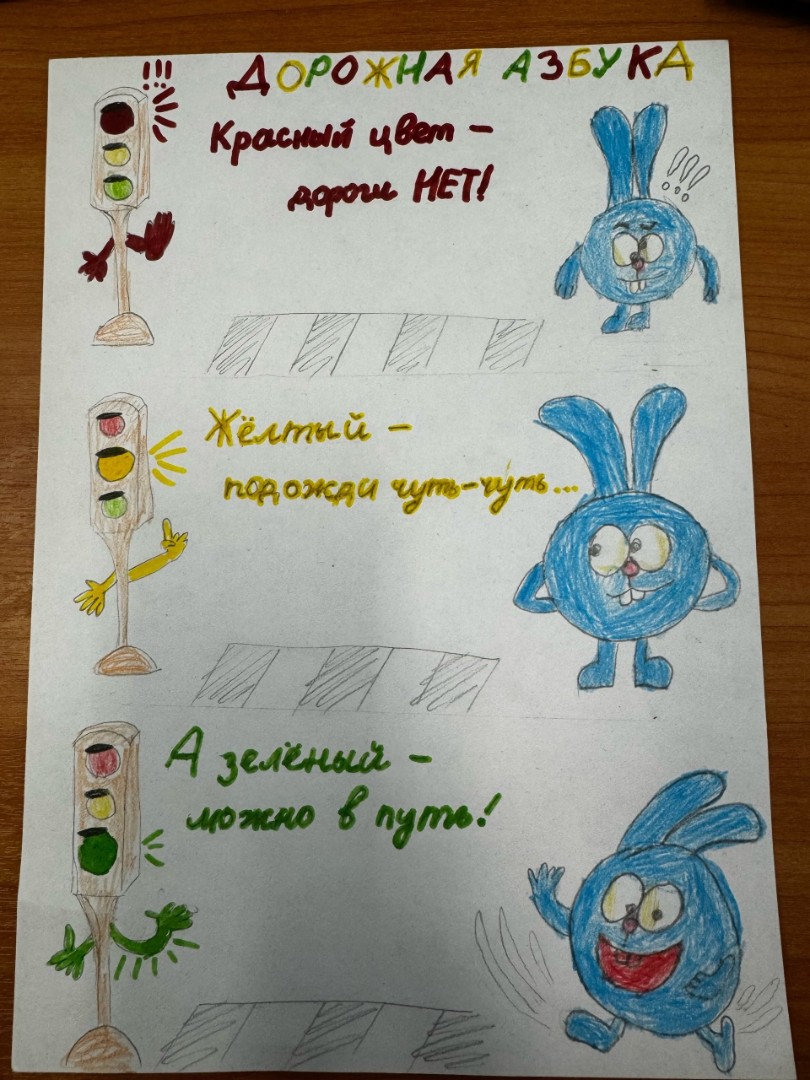 ДОРОЖНАЯ АЗБУКА
!!!
Красный цвет -
дороги НЕТ!
!!!
Жёлтый -
подожди чуть-чуть...
А зелёный -
можно в путь!